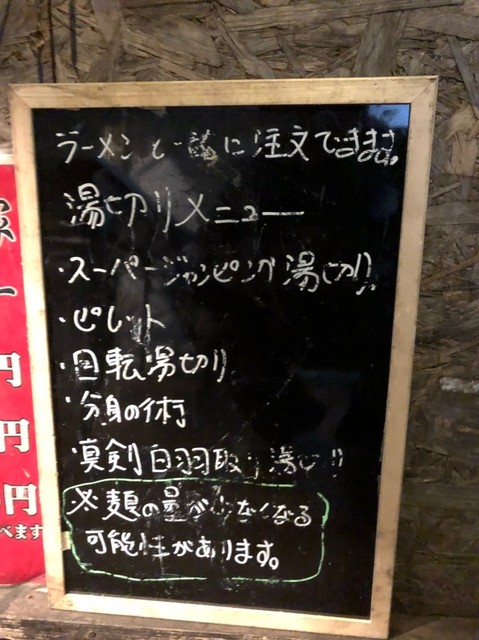 ラーメンと一緒に注文できます。
湯切りメニュー
・スーパージャンピング湯切り
・ピレット
・回転湯切り
・分身の術
・真剣白羽取り湯切り
※麺の量が少なくなる
可能性があります。
円
円
円
べます